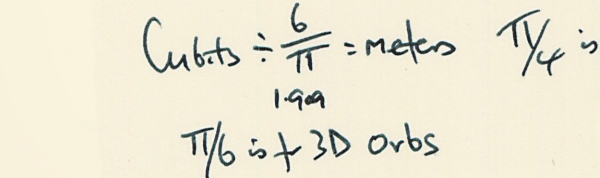 Cubits ÷ 6/π = meters π/4 is
1.909
π/6 is for 3D orbs